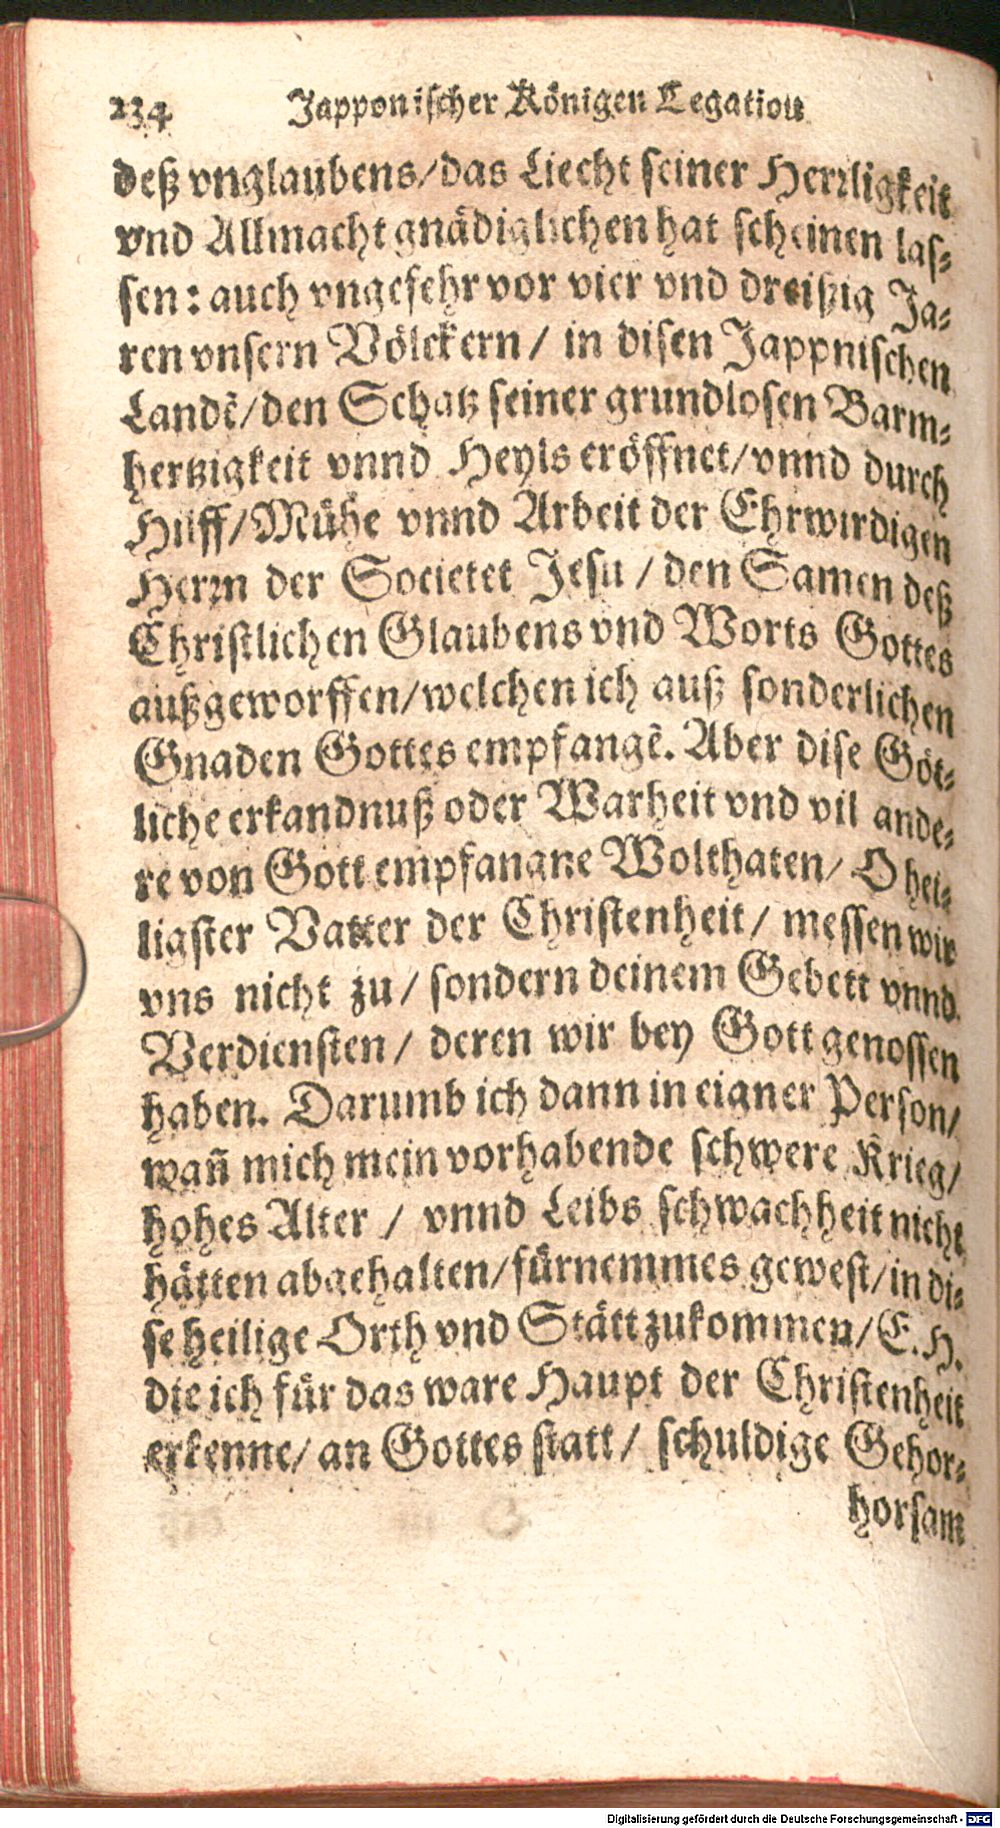 234 Japponischer Königen Legation
deß vnglaubens/das Liecht seiner Herrligkeit
vnd Allmacht gnädiglichen hat scheinen las-
sen: auch vngefehr vor vier vnd dreißig Ja-
ren vnsern Völckern/ in disen Jappnischen
Landẽ/den Schatz seiner grundlosen Barm-
hertzigkeit vnnd Heyls eröffnet/vnnd durch
Hilff/Mühe vnnd Arbeit der Ehrwirdigen
Herrn der Societet Jesu /den Samen deß
Christlichen Glaubens vnd Worts Gottes
außgeworffen/welchen ich auß sonderlichen
Gnaden Gottes empfangẽ. Aber dise Göt-
liche erkandnuß oder Warheit vnd vil ande-
re von Gott empfangne Wolthaten/ O hei-
ligster Vatter der Christenheit/ messen wir
vns nicht zu/ sondern deinem Gebett vnnd
Verdiensten/ deren wir bey Gott genossen
haben. Darumb ich dann in eigner Person/
wañ mich mein vorhabende schwere Krieg/
hohes Alter / vnnd Leibs schwachheit nicht
hätten abgehalten/fürnemmes gewest/in di-
se heilige Orth vnd Stätt zukommen/E. H.
die ich für das ware Haupt der Christenheit
erkenne/an Gottes statt/ schuldige Gehor-
horsam
Digitalisierung gefördert durch die Deutsche Forschungsgemeinschaft - DFG